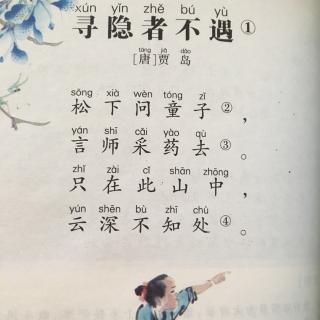 xún yǐn zhě bú yù
寻隐者不遇①
táng jiǎ dǎo
[唐]贾岛
sōng xià wèn tóng zǐ
松下问童子②，
yán shī cǎi yào qù
言师采药去③。
zhǐ zài cǐ shān zhōng
只在此山中，
yún shēn bù zhī chù
云深不知处④。